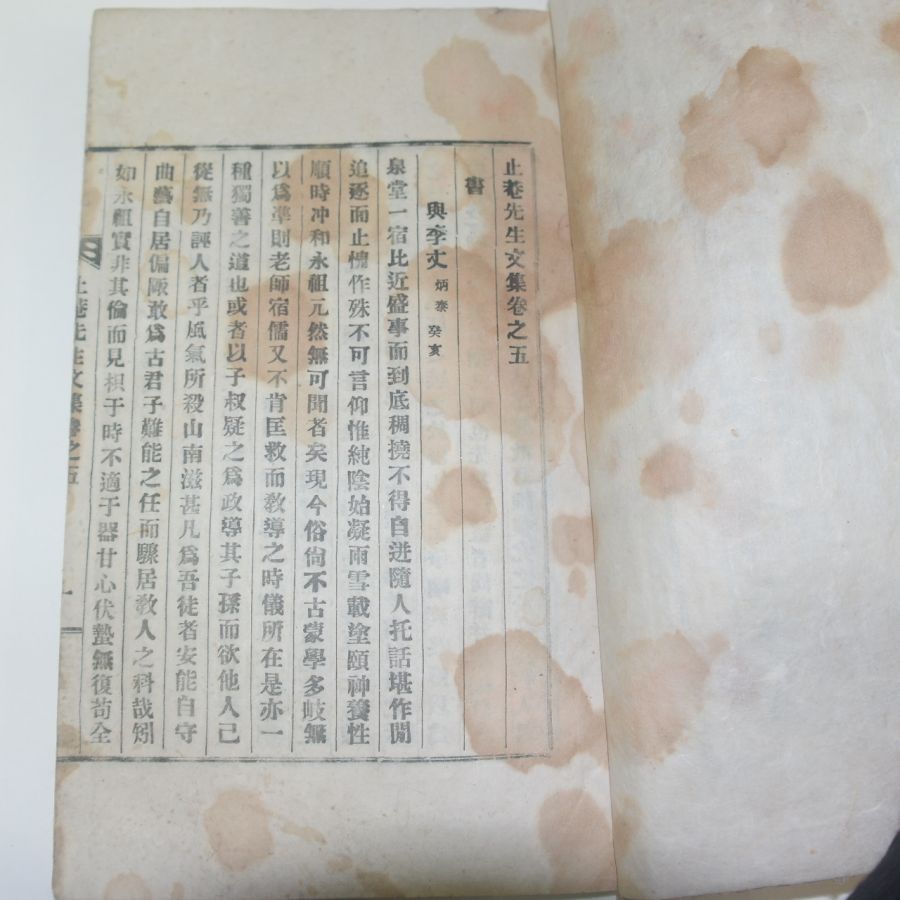 止菴先生文集卷之五
書
與李丈 炳泰 癸亥
泉堂一宿比近盛事而到底稠撓不得自迸隨人托話堪作閒
追逐而止愧作殊不可言仰惟純陰始凝雨雪載塗頤神養性
順時冲和永祖兀然無可聞者矣現今俗尙不古蒙學多岐無
以爲準則老師宿儒又不肯匡救而敎導之時儀所在是亦一
種獨善之道也或者以子叔疑之爲政導其子孫而欲他人己
從無乃誣人者乎風氣所殺山南滋甚凡爲吾徒者安能自守
曲藝自居偏陬敢爲古君子難能之任而驟居敎人之科哉矧
如永祖實非其倫而見枳于時不適于器甘心伏蟄無復苟全
止菴先生文集卷之五
一